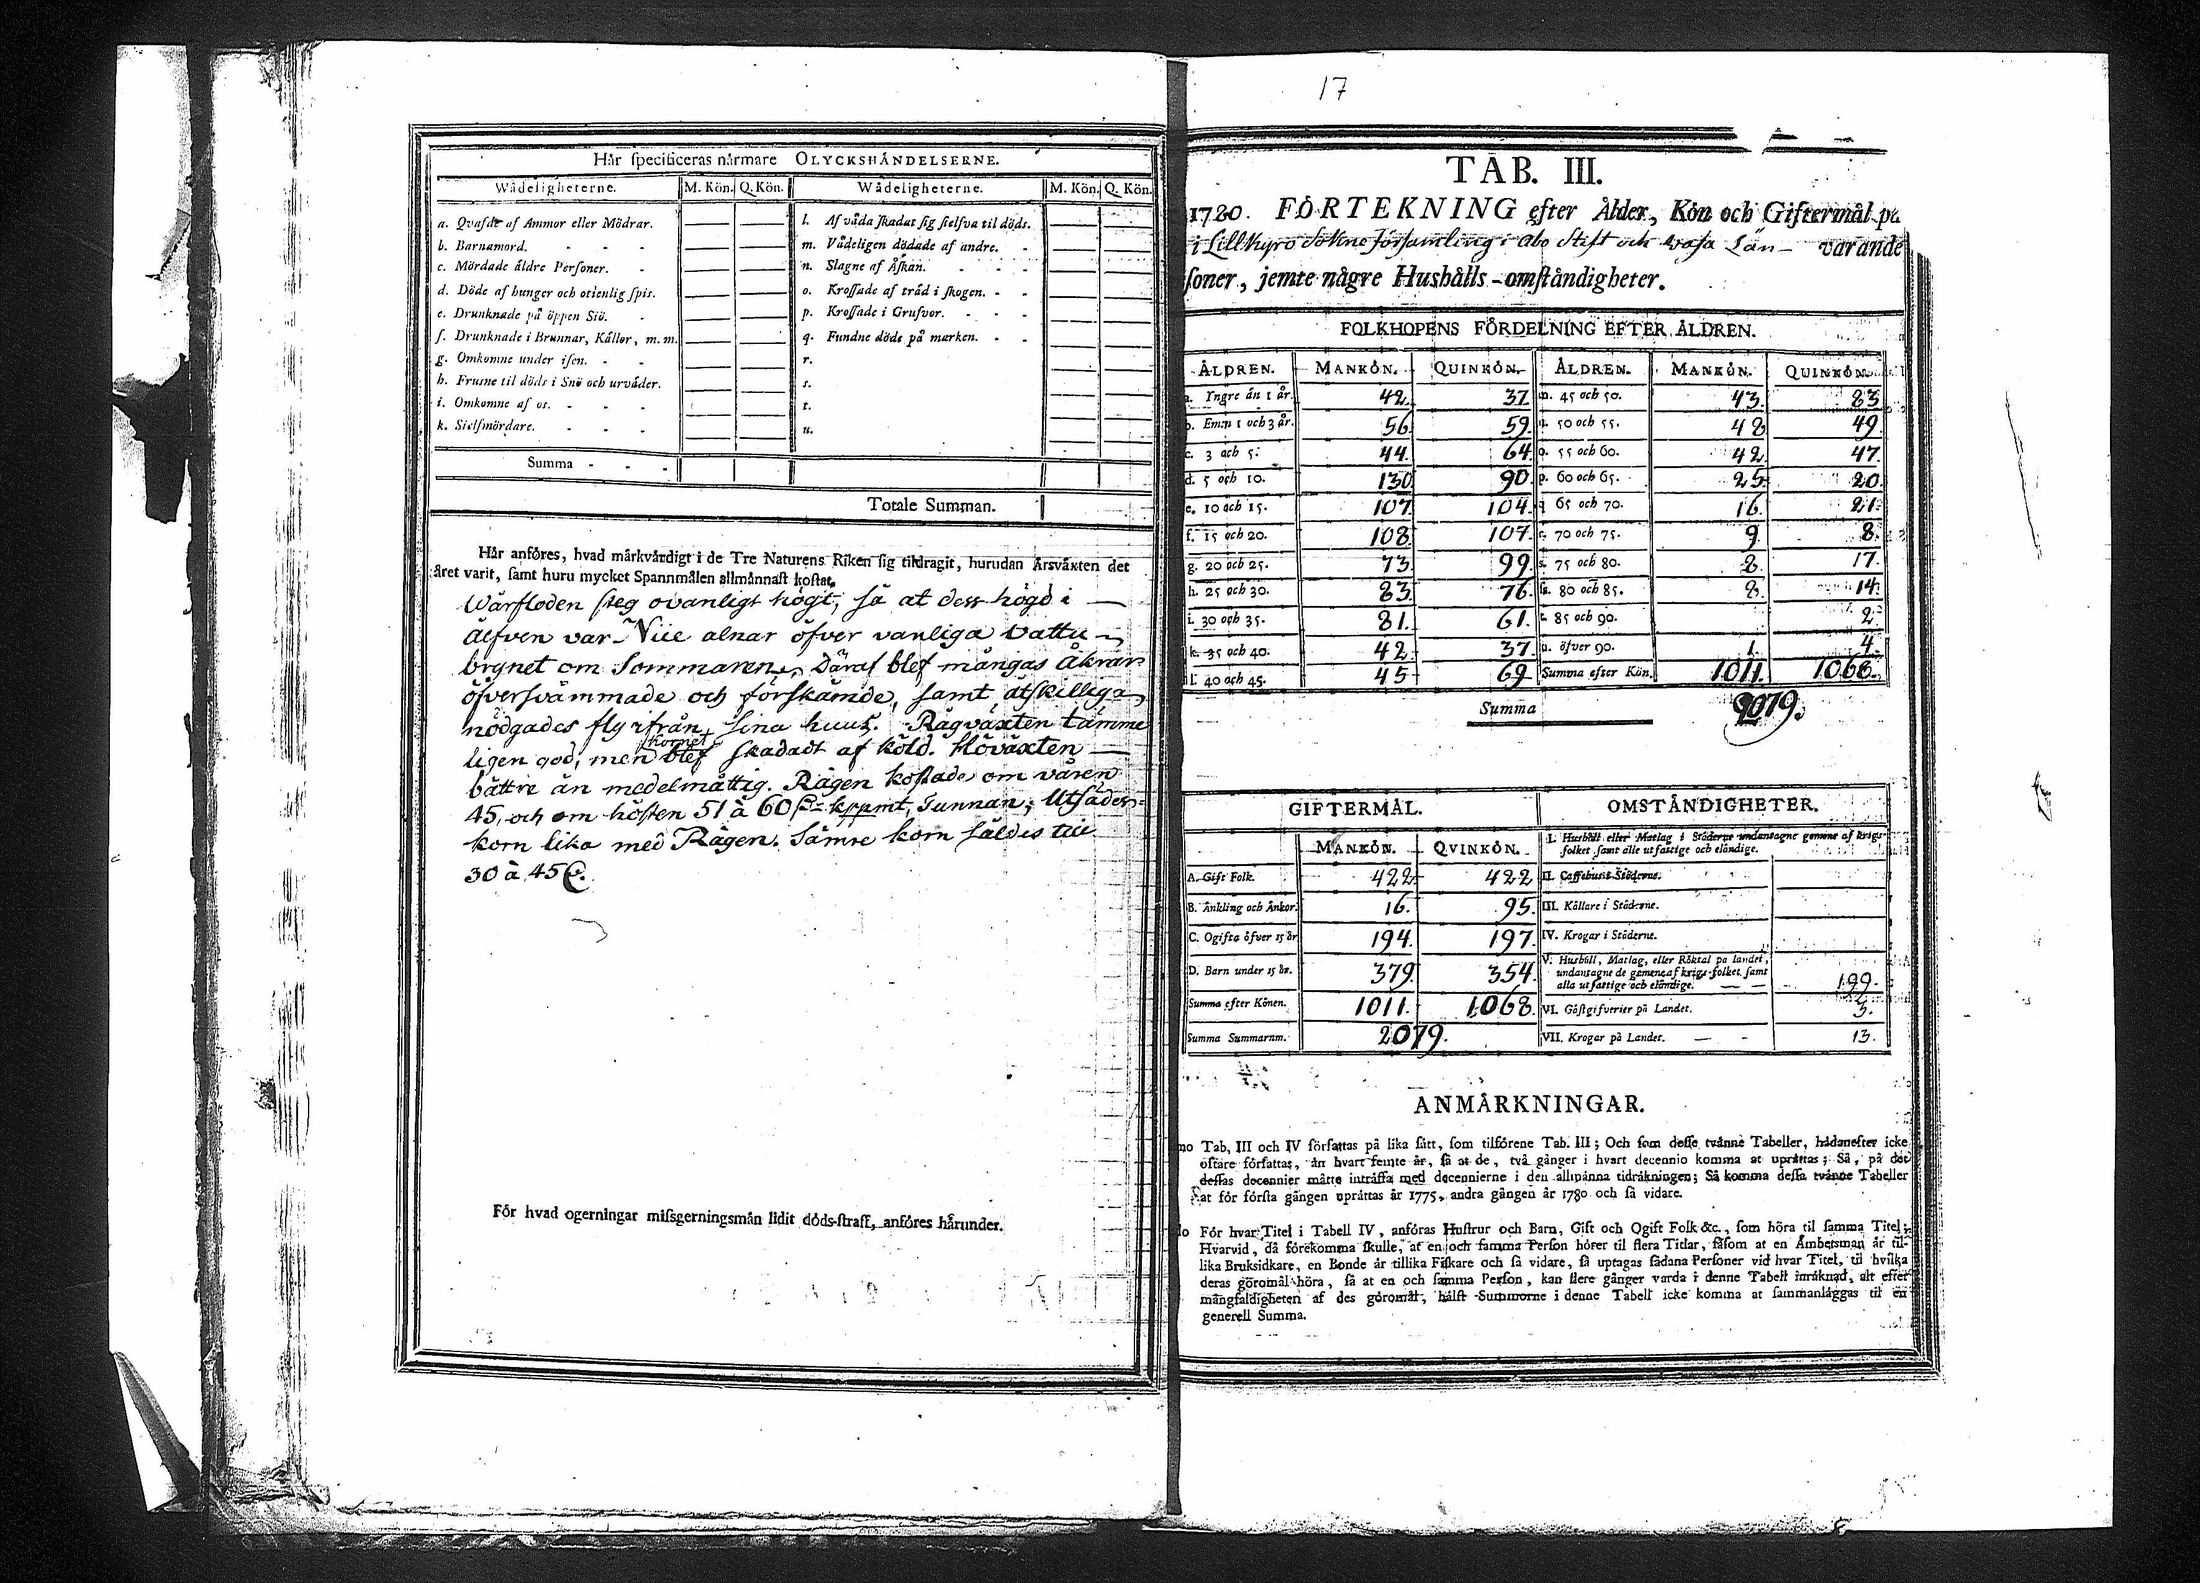 Hår specificeras nårmare OLYCKSHÅNDELSERNE.
Wådeligheterne. M. Kön. Q. Kön. Wådeligheterne. M. Kön. Q. Kön.
a. Qvafde af Ammor eller Mödrar.
b. Barnamord. - - -
c. Mördade åldre Personer. -
d. Döde af hunger och otienlig spis.
e. Drunknade på öppen Siö. -
f. Drunknade i Brunnar, Kållor, m. m.
g. Omkomne under isen. - -
h. Frusne til döds i Snö och urvåder.
i. Omkomne af os. - - -
k. Sielfmördare. - - -
l. Af våda skadat sig sielfva til döds.
m. Vådeligen dödade af andre. -
n. Slagne af Åskan. - - -
o. Krossade af tråd i skogen. - -
p. Krossade i Grufvor. - - -
q. Fundne döde på marken. - -
r.
s.
t.
u.
Summa - - -
Totale Summan.
Hår anföres, hvad mårkvårdigt i de Tre Naturens Riken sig tildragit, hurudan Årsvåxten det
året varit, samt huru mycket Spannmålen allmånnast kostat.
Wårfloden steg ovanligt högt, så at dess högd i
älfven var Siu alnar öfver vanliga vattu-
brynet om Sommaren. Däraf blef mångas Åkrar
öfversvämmade och förskämde, samt åtskillige
nödgades fly ifrån sina huus. Rågväxten tämme
ligen god, men kornet blef skadadt af köld. Höväxten
bättre än medelmåttig. Rågen kostade om våren
45, och om hösten 51 à 60 kppmt, Tunnan; Utsädes-
korn lika med Rågen. Sämre korn såldes till
30 à 45
För hvad ogerningar missgerningsmån lidit döds-straff, anföres hårunder.
17
TAB. III.
1780. FÖRTEKNING efter Ålder, Kön och Giftermål på
i Lillkyro Sokne församling i Åbo Stift och Wasa Län varande
soner, jemte någre Hushålls-omståndigheter.
FOLKHOPENS FÖRDELNING EFTER ÅLDREN.
ÅLDREN. MANKÖN. QUINKÖN. ÅLDREN. MANKÖN. QUINKÖN.
a. Yngre ån 1 år. 42. 37. m. 45 och 50. 43. 83.
b. Em:n 1 och 3 år. 56. 59. n. 50 och 55. 48 49.
c. 3 och 5. 44. 64. o. 55 och 60. 42. 47.
d. 5 och 10. 130. 90. p. 60 och 65. 25. 20.
e. 10 och 15. 107. 104. q. 65 och 70. 16. 21.
f. 15 och 20. 108. 107. r. 70 och 75. 9. 8.
g. 20 och 25. 73. 99. s. 75 och 80. 8. 17.
h. 25 och 30. 83. 76. ss. 80 och 85. 8. 14.
i. 30 och 35. 81. 61. t. 85 och 90. 2.
k. 35 och 40. 42. 37. u. öfver 90. 1. 4.
l. 40 och 45. 45 69. Summa efter Kön. 1011. 1068.
Summa 2079.
GIFTERMÅL. OMSTÅNDIGHETER.
MANKÖN. QVINKÖN.
I. Hushåll eller Matlag i Ståderne undantagne gemene af krigs-
folket samt alle utfattige och elåndige.
A. Gift Folk. 422. 422 II. Caffehusi Stöderne.
B. Änkling och Änkor. 16. 95. III. Kållare i Ståderne.
C. Ogifta öfver 15 år 194. 197. IV. Krogar i Ståderne.
D. Barn under 15 år. 379. 354. V. Hushåll, Matlag, eller Röktal på landet,
undantagne de gemene af krigs-folket samt
alla utfattige och elåndige. 199.
Summa efter Könen. 1011. 1068. VI. Gåstgifverier på Landet. 3.
Summa Summarum. 2079. VII. Krogar på Landet. 13.
ANMÅRKNINGAR.
mo Tab. III och IV författas på lika sått, som tilförene Tab. III; Och som desse tvånne Tabeller, hådanefter icke
oftare författas, ån hvart femte år, så at de, två gånger i hvart decennio komma at upråttas; Så, på det
dessas decennier måtte intråffa med decennierne i den allmånna tidråkningen; Så komma dessa tvånne Tabeller
at för första gången upråttas år 1775, andra gången år 1780 och så vidare.
do För hvar Titel i Tabell IV, anföras Hustrur och Barn, Gift och Ogift Folk &c., som höra til samma Titel;
Hvarvid, då förekomma skulle, at en och samma Person hörer til flera Titlar, såsom at en Åmbetsman år til-
lika Bruksidkare, en Bonde år tillika Fiskare och så vidare, så uptagas sådana Personer vid hvar Titel, til hvilka
deras göromål höra, så at en och samma Person, kan flere gånger varda i denne Tabell inråknad, alt efter
mångfaldigheten af des göromål, hålst Summorne i denne Tabell icke komma at sammanlåggas til en
generell Summa.